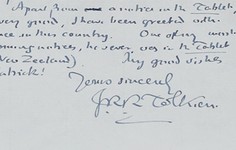 Apart from a notice in the Tablet,
very grand, I have been greeted with
ce in this country. One of my most
notices, he never was in the Tablet
New Zealand). My good wishes
atrick!
Yours sincerely
J.R.R. Tolkien.